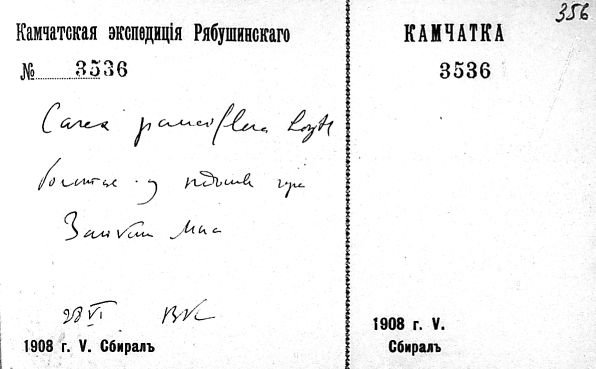 Камчатская экспедиція Рябушинскаго
№ 3536
Carex pauciflora Light
болотце у подошв горы
28 VI
1908 г. V. Сбиралъ
356
КАМЧАТКА
3536
1908 г. V.
Сбиралъ